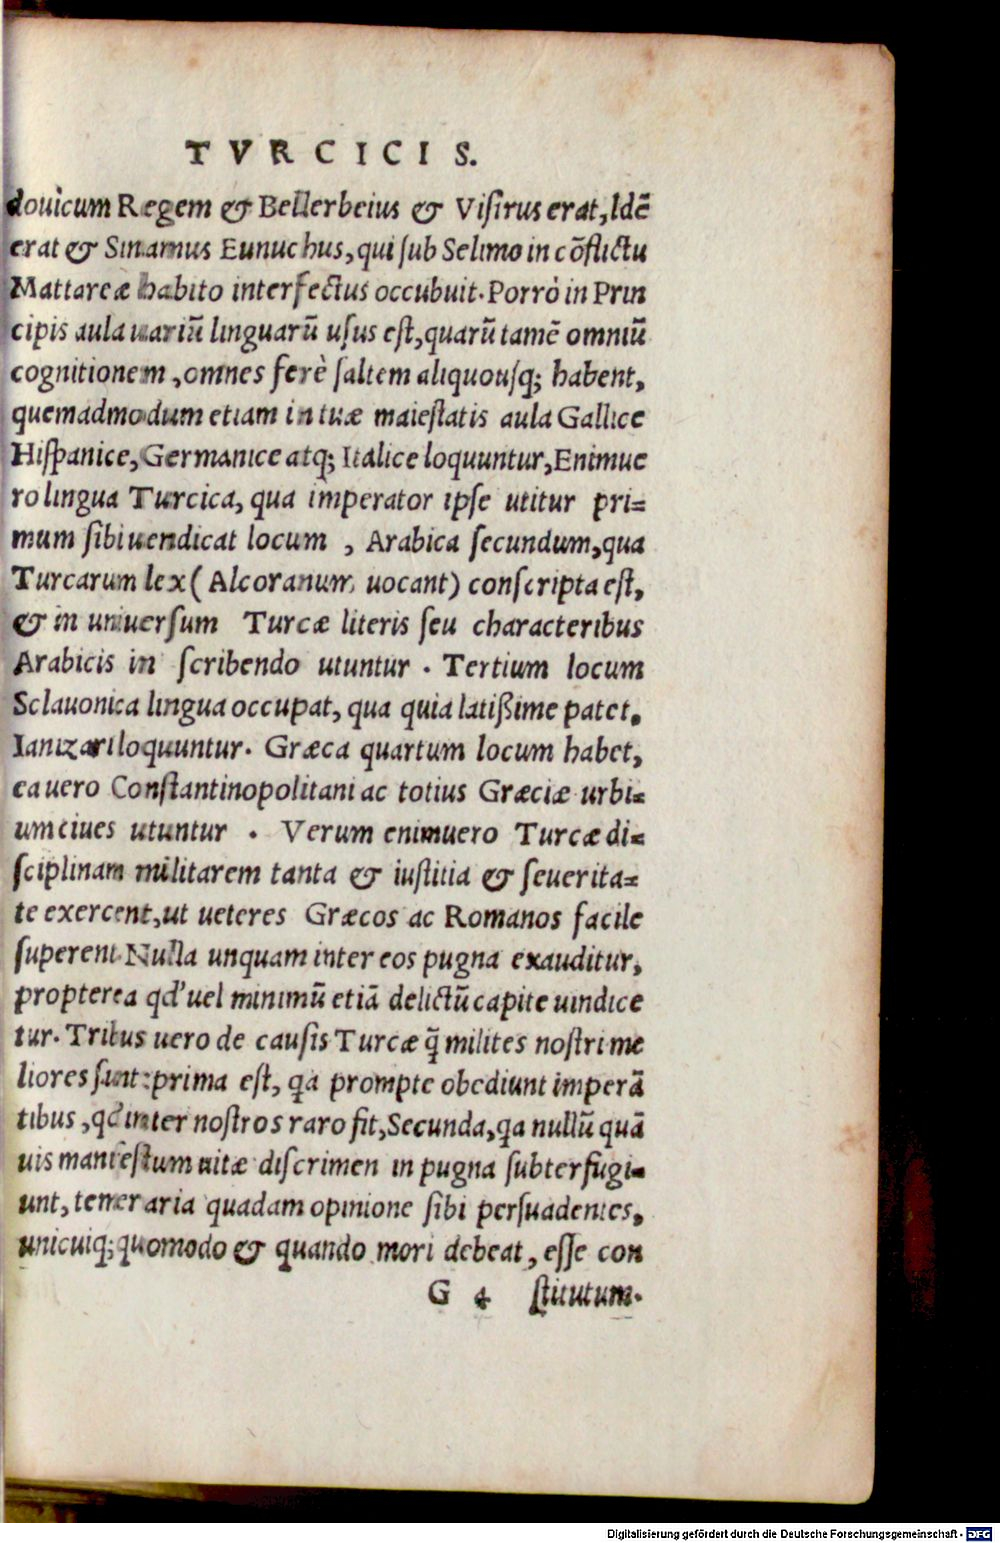 TVRCICIS.
douicum Regem & Bellerbeius & Visirus erat, Idē
erat & Sinamus Eunuchus, qui sub Selimo in cōflictu
Mattareæ habito interfectus occubuit. Porrò in Prin
cipis aula uariū linguarū usus est, quarū tamē omniū
cognitionem, omnes ferè saltem aliquousq; habent,
quemadmodum etiam in tuæ maiestatis aula Gallice
Hispanice, Germanice atq; Italice loquuntur, Enimue
ro lingua Turcica, qua imperator ipse utitur pri=
mum sibi uendicat locum , Arabica secundum, qua
Turcarum lex ( Alcoranum uocant) conscripta est,
& in uniuersum Turcæ literis seu characteribus
Arabicis in scribendo utuntur . Tertium locum
Sclauonica lingua occupat, qua quia latißime patet,
Ianizari loquuntur. Græca quartum locum habet,
ea uero Constantinopolitani ac totius Græciæ urbi=
um ciues utuntur . Verum enimuero Turcæ di=
sciplinam militarem tanta & iustitia & seuerita=
te exercent, ut ueteres Græcos ac Romanos facile
superent. Nulla unquam inter eos pugna exauditur,
propterea qd' uel minimū etiā delictū capite uindice
tur. Tribus uero de causis Turcæ q̄ milites nostri me
liores sunt: prima est, qa prompte obediunt imperā
tibus, qd' inter nostros raro fit, Secunda, qa nullū quā
uis manifestum uitæ discrimen in pugna subterfugi=
unt, temeraria quadam opinione sibi persuadentes,
unicuiq; quomodo & quando mori debeat, esse con
G 4 stitutum.
Digitalisierung gefördert durch die Deutsche Forschungsgemeinschaft - DFG